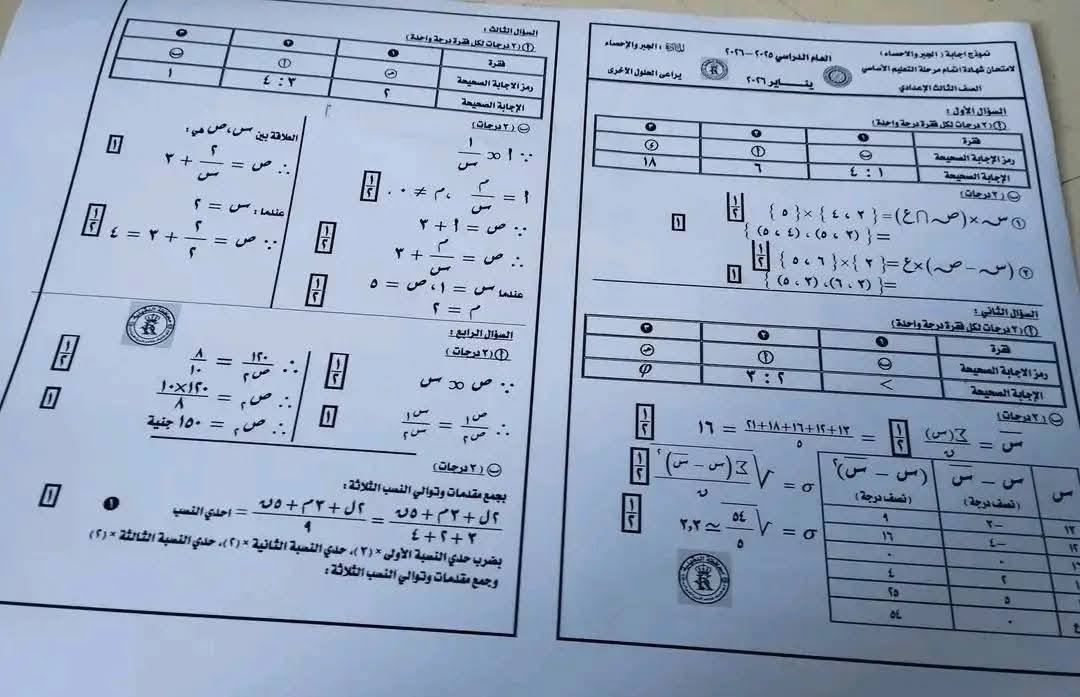 نموذج إجابة ( الجبر والاحصاء )
لامتحان شهادة إتمام مرحلة التعليم الأساسي
الصف الثالث الإعدادي
العام الدراسي ٢٠٢٥ – ٢٠٢٦
ينـــاير ٢٠٢٦
المادة : الجبر والإحصاء
يراعى الحلول الأخرى
السؤال الأول :
أ) (٣ درجات لكل فقرة درجة واحدة)
فقرة ١ ٢ ٣
رمز الإجابة الصحيحة ب أ د
الإجابة الصحيحة ١ : ٤ ٦ ١٨
ب (٣ درجات)
١ س × (ص ∩ ع) = { ٢ ، ٤ } × { ٥ } ١/٢
= { (٢ ، ٥) ، (٤ ، ٥) } ١
٢ (س – ص) × ع = { ٢ } × { ٦ ، ٥ } ١/٢
= { (٢ ، ٦) ، (٢ ، ٥) } ١
السؤال الثاني :
أ) (٣ درجات لكل فقرة درجة واحدة)
فقرة ١ ٢ ٣
رمز الإجابة الصحيحة ب أ ج
الإجابة الصحيحة > ٢ : ٣ φ
ب (٣ درجات)
س̄ = مجـ(س)/ن ١/٢ = (١٣+١٢+١٦+١٨+٢١)/٥ = ١٦ ١/٢
س س – س̄ (س – س̄)²
(نصف درجة) (نصف درجة)
١٣ –٣ ٩
١٢ –٤ ١٦
٠ ٠
٢ ٤
٥ ٢٥
٠ ٥٤
σ = √(مجـ(س – س̄)²/ن) ١/٢
σ = √(٥٤/٥) ≃ ٣,٣ ١/٢
السؤال الثالث :
أ) (٣ درجات لكل فقرة درجة واحدة)
فقرة ١ ٢ ٣
رمز الإجابة الصحيحة ج أ ب
الإجابة الصحيحة ٢ ٣ : ٤ ١
ب (٣ درجات)
∵ أ ∝ ١/س
أ = م/س ، م ≠ ٠ . ١/٢
∵ ص = أ + ٣
∴ ص = م/س + ٣ ١/٢
عندما س = ١ ، ص = ٥
م = ٢ ١/٢
العلاقة بين س ، ص هي :
∴ ص = ٢/س + ٣ ١
عندما : س = ٢
∵ ص = ٢/٢ + ٣ = ٤ ١/٢
السؤال الرابع :
أ) (٣ درجات)
∵ ص ∝ س ١/٢
∴ ص١/ص٢ = س١/س٢ ١
∴ ١٢٠/ص٢ = ٨/١٠ ١/٢
∴ ص٢ = (١٢٠×١٠)/٨
∴ ص٢ = ١٥٠ جنية ١
ب (٣ درجات)
بجمع مقدمات وتوالي النسب الثلاثة :
(٢ل + ٣م + ٥ن)/(٣+٢+٤) = (٢ل + ٣م + ٥ن)/٩ = احدي النسب ١ ١
بضرب حدي النسبة الأولى × (٣)، حدي النسبة الثانية × (٢)، حدي النسبة الثالثة × (٢)
وجمع مقدمات وتوالي النسب الثلاثة :